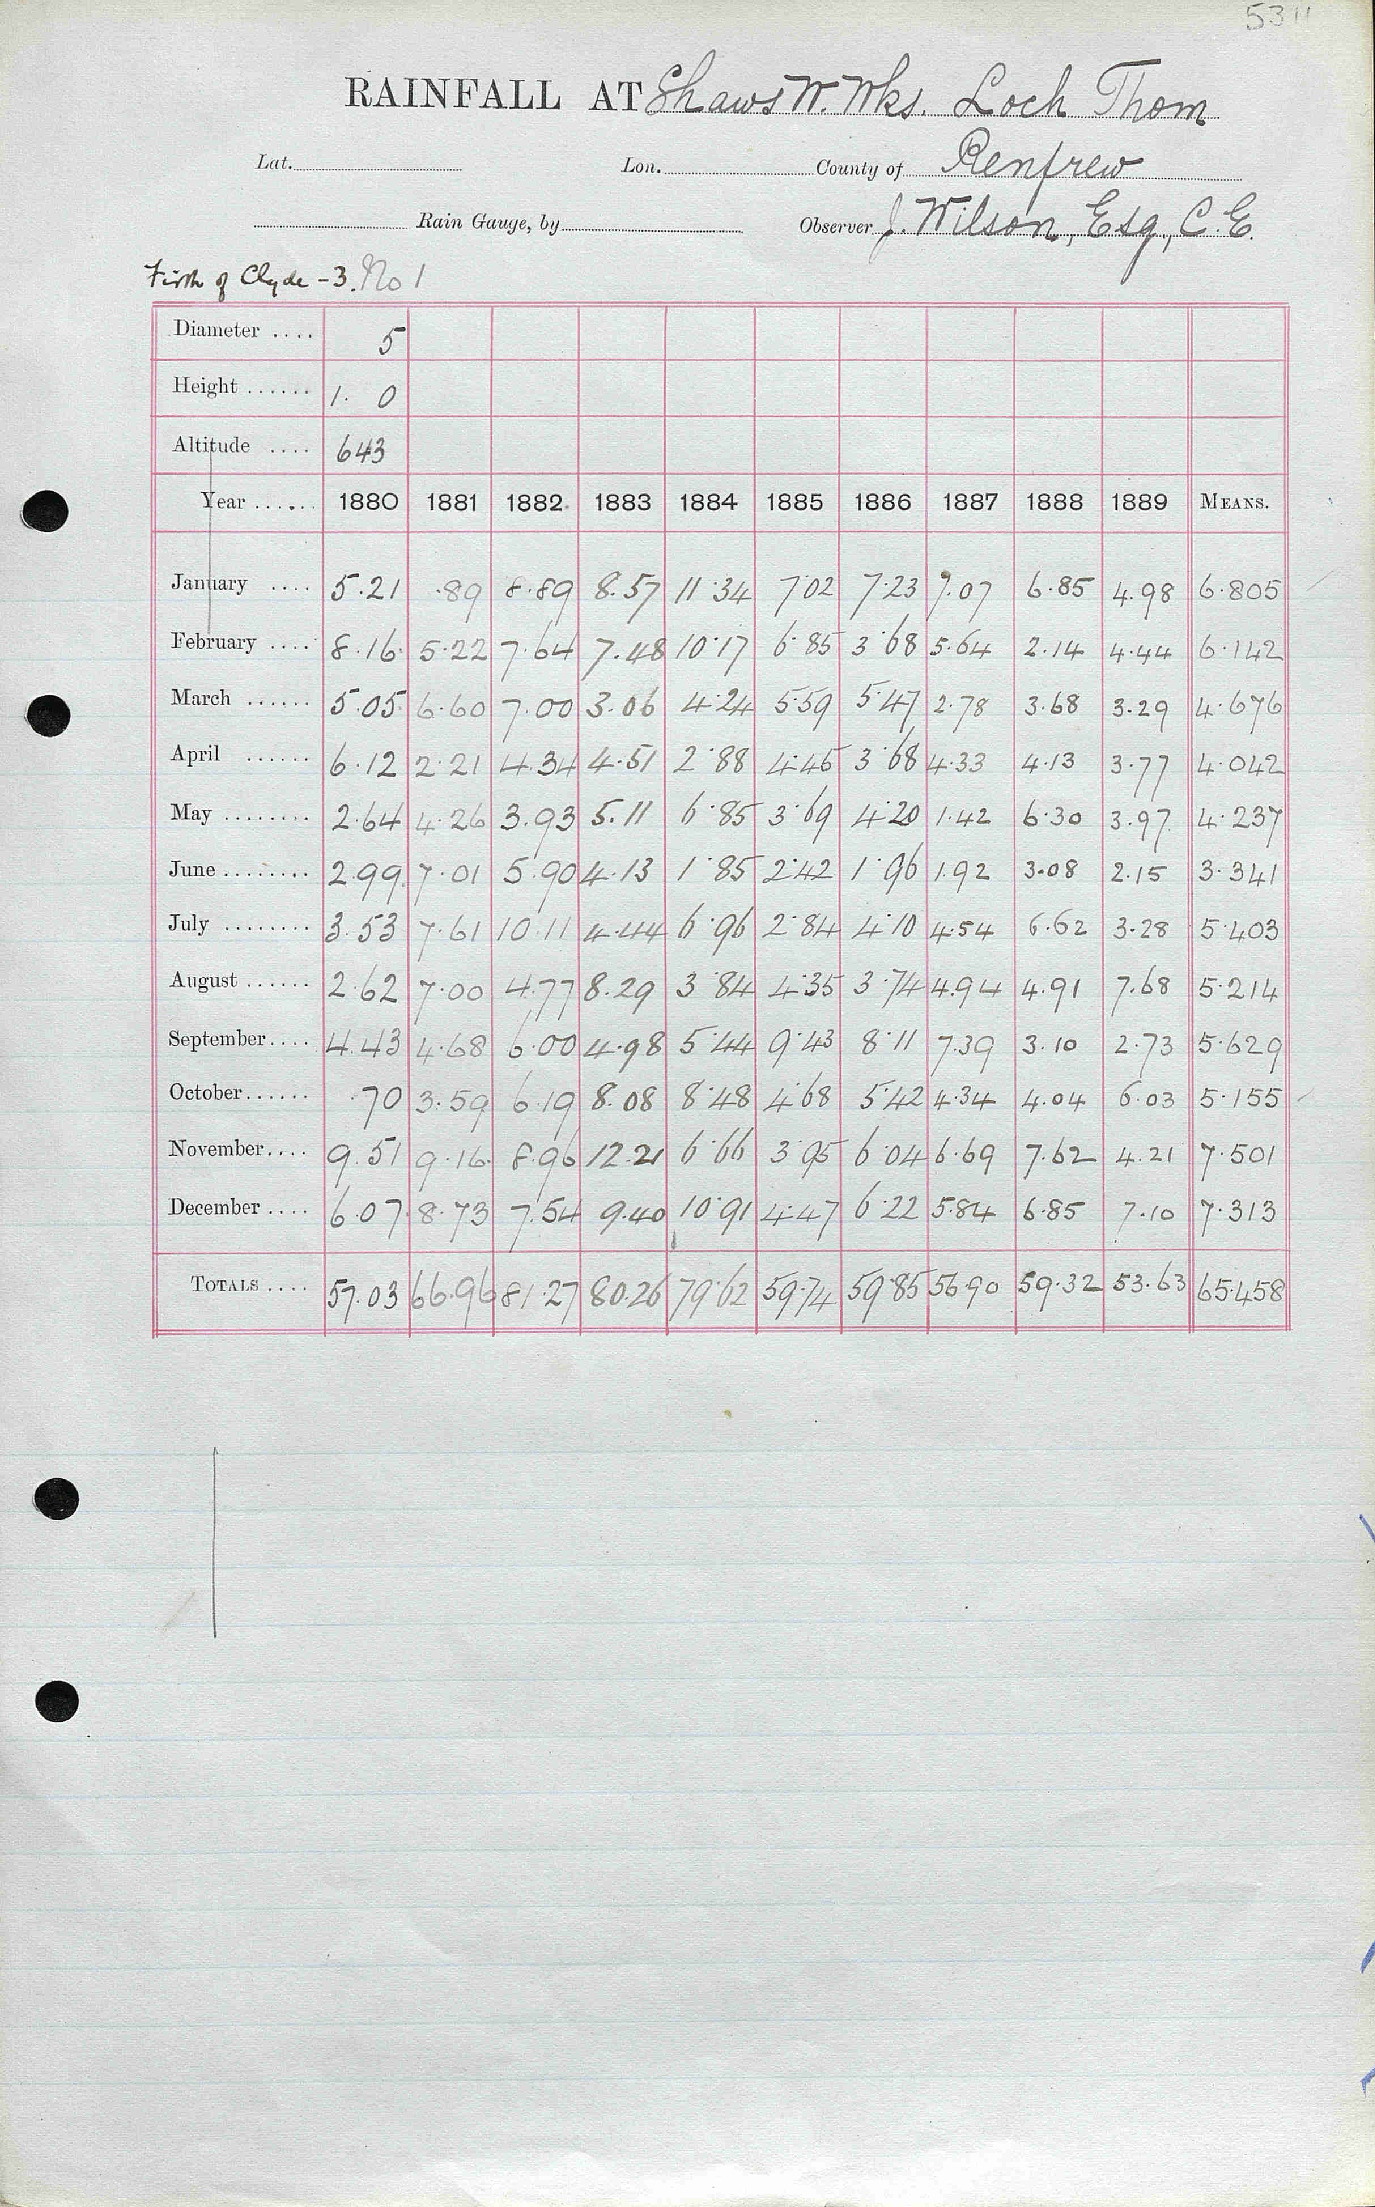 5311
RAINFALL AT Shaws W. Wks. Loch Thom
Lat. Lon. County of Renfrew
Rain Gauge, by Observer J. Wilson, Esq., C.E.
Firth of Clyde - 3. No 1
Diameter .... 5
Height ...... 1. 0
Altitude .... 643
Year ...... 1880 1881 1882 1883 1884 1885 1886 1887 1888 1889 MEANS.
January .... 5.21 .89 8.89 8.57 11.34 7.02 7.23 7.07 6.85 4.98 6.805
February .... 8.16 5.22 7.64 7.48 10.17 6.85 3.68 5.64 2.14 4.44 6.142
March ...... 5.05 6.60 7.00 3.06 4.24 5.59 5.47 2.78 3.68 3.29 4.676
April ...... 6.12 2.21 4.34 4.51 2.88 4.45 3.68 4.33 4.13 3.77 4.042
May ........ 2.64 4.26 3.93 5.11 6.85 3.69 4.20 1.42 6.30 3.97 4.237
June ........ 2.99 7.01 5.90 4.13 1.85 2.42 1.96 1.92 3.08 2.15 3.341
July ........ 3.53 7.61 10.11 4.44 6.96 2.84 4.10 4.54 6.62 3.28 5.403
August ...... 2.62 7.00 4.77 8.29 3.84 4.35 3.74 4.94 4.91 7.68 5.214
September.... 4.43 4.68 6.00 4.98 5.44 9.43 8.11 7.39 3.10 2.73 5.629
October...... .70 3.59 6.19 8.08 8.48 4.68 5.42 4.34 4.04 6.03 5.155
November.... 9.51 9.16 8.96 12.21 6.66 3.95 6.04 6.69 7.62 4.21 7.501
December .... 6.07 8.73 7.54 9.40 10.91 4.47 6.22 5.84 6.85 7.10 7.313
TOTALS .... 57.03 66.96 81.27 80.26 79.62 59.74 59.85 56.90 59.32 53.63 65.458